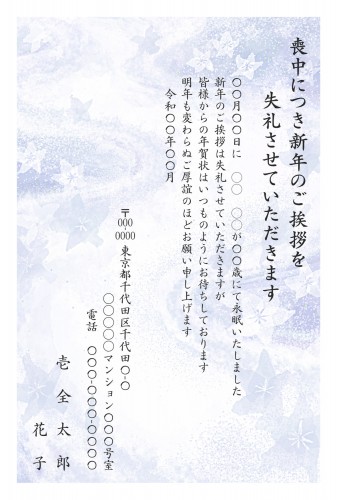 喪中につき新年のご挨拶を
失礼させていただきます
〇〇月〇〇日に　〇〇　〇〇が〇〇歳にて永眠いたしました
新年のご挨拶は失礼させていただきますが
皆様からの年賀状はいつものようにお待ちしております
明年も変わらぬご厚誼のほどお願い申し上げます
令和〇〇年〇〇月
〒000
0000
東京都千代田区千代田〇-〇
〇〇〇〇〇マンション〇〇〇号室
電話　〇〇〇-〇〇〇-〇〇〇〇
壱全太郎
花子